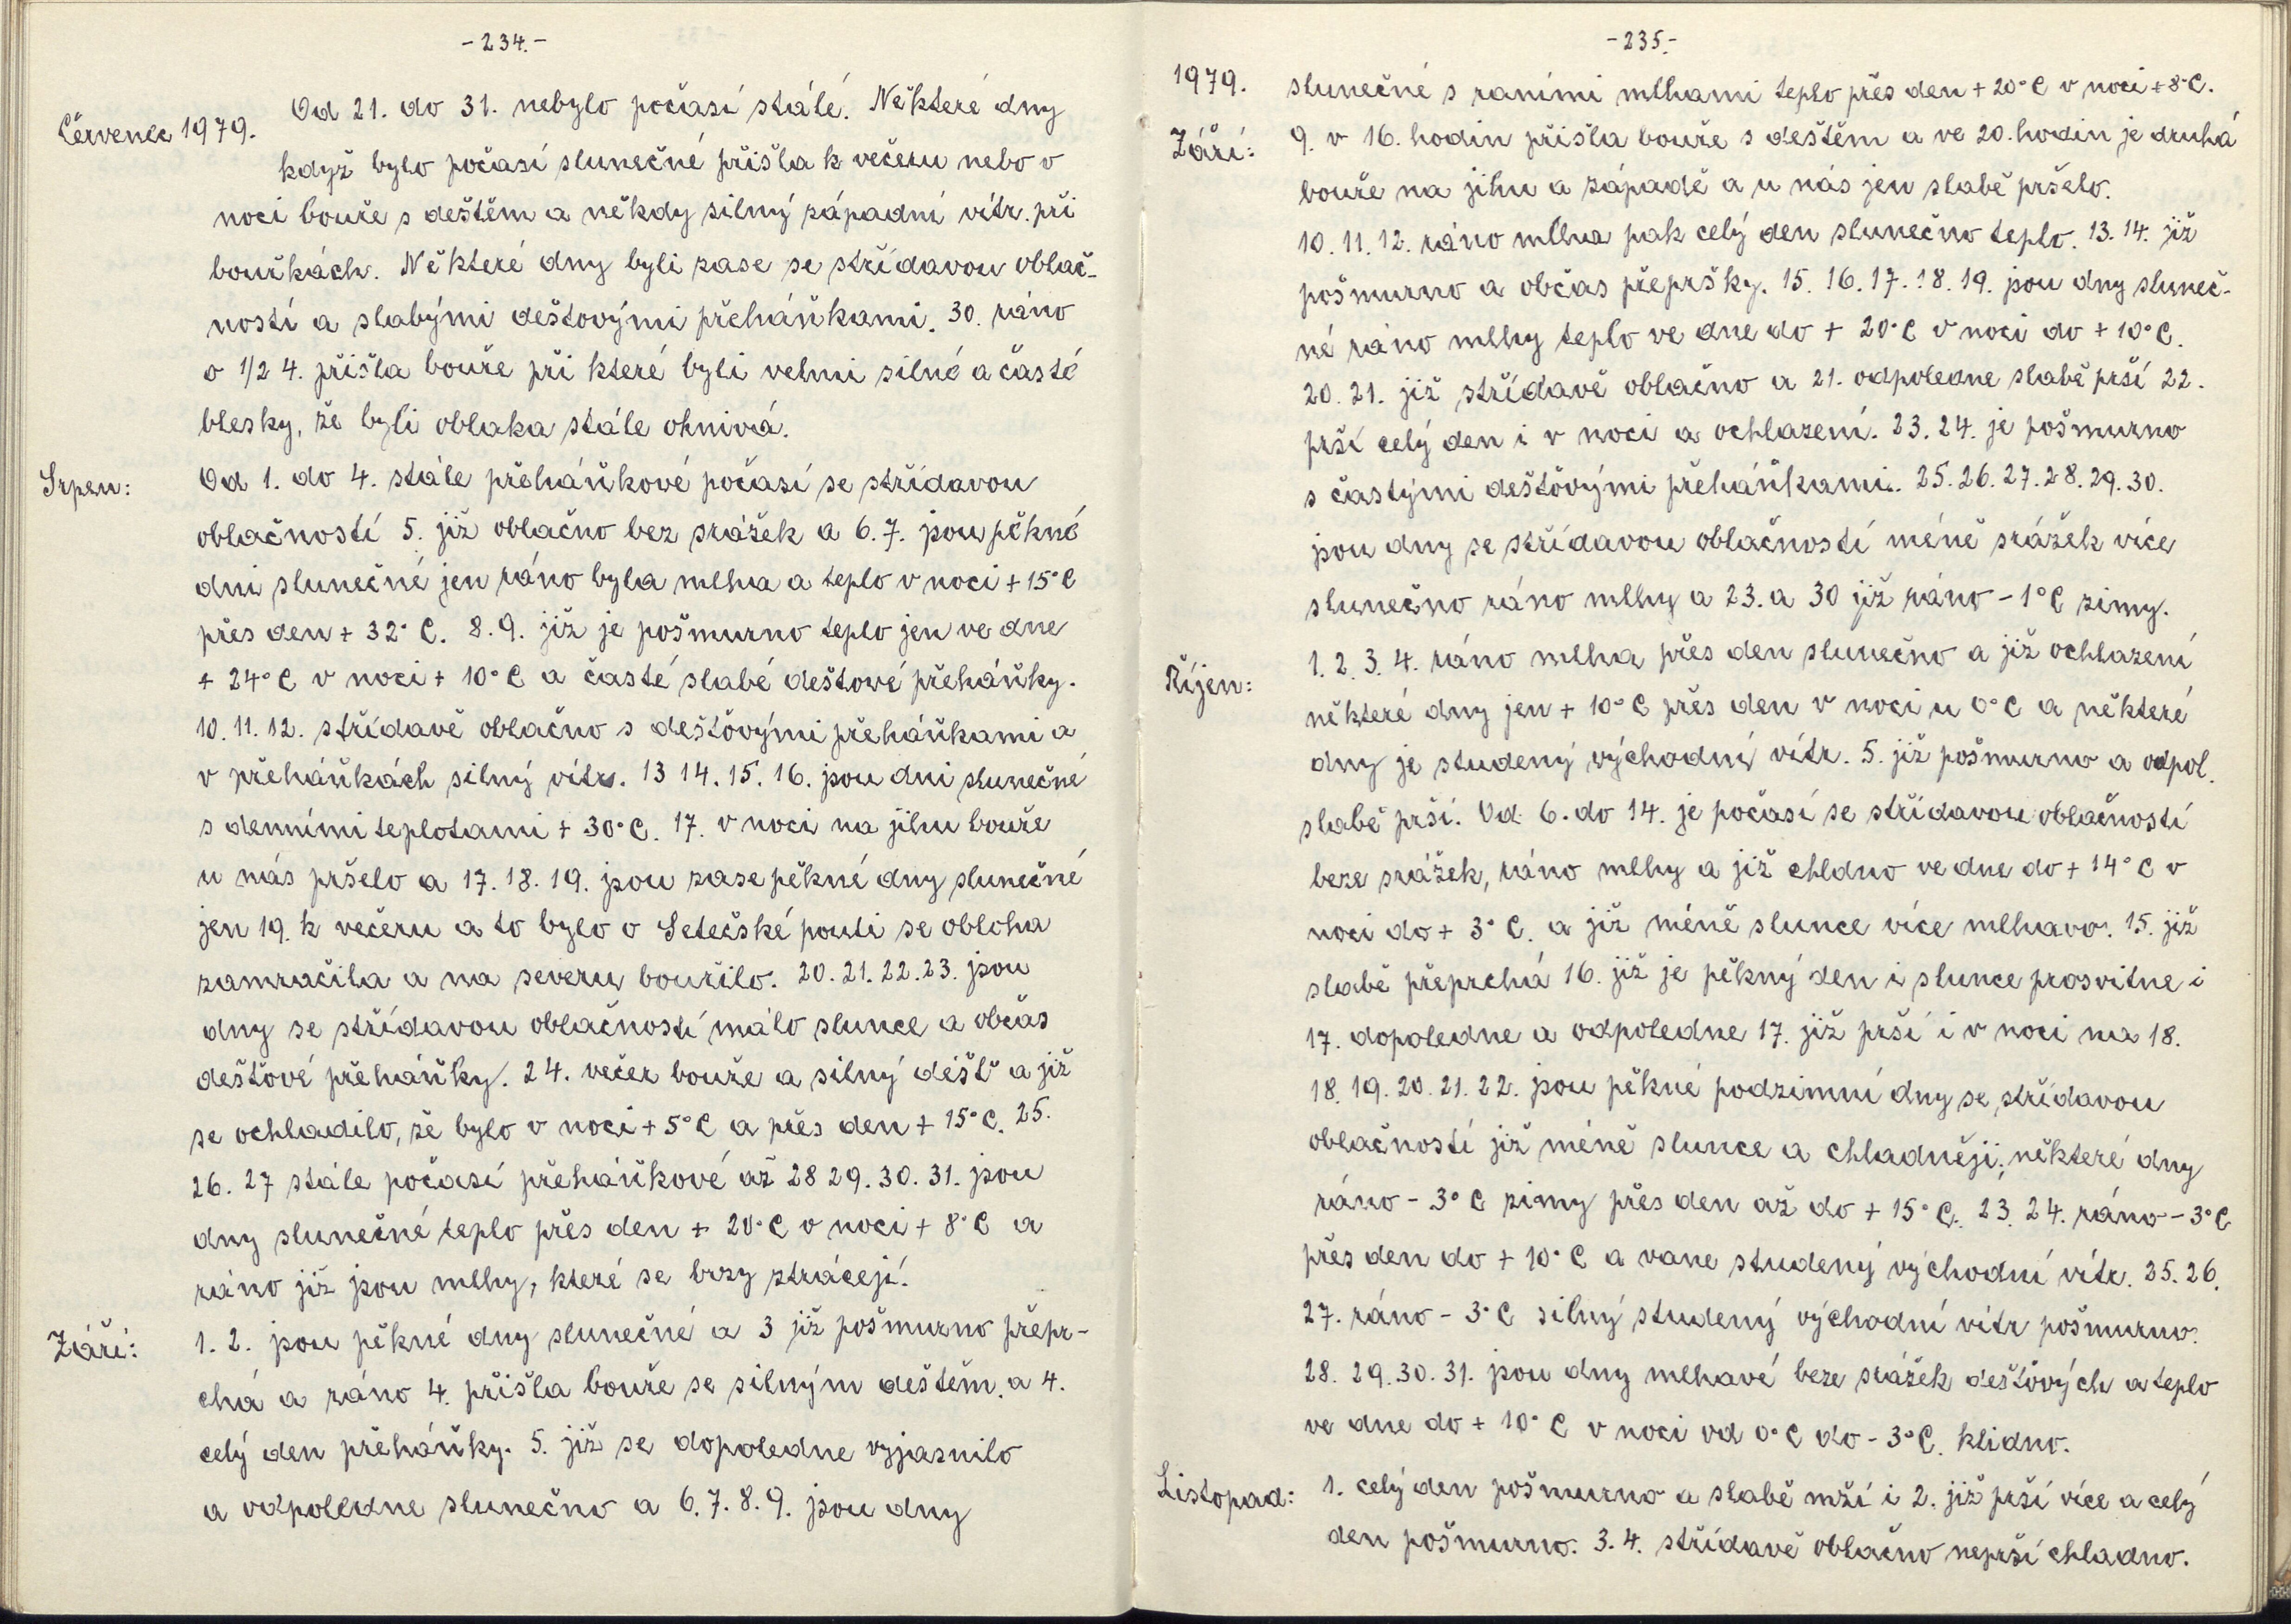 - 234. -
Červenec 1979.
Od 21. do 31. nebylo počasí stálé. Některé dny
když bylo počasí slunečné přišla k večeru nebo v
noci bouře s deštěm a někdy silný západní vítr při
bouřkách. Některé dny byli zase se střídavou oblač-
ností a slabými dešťovými přeháňkami. 30. ráno
o 1/2 4. přišla bouře při které byli velmi silné a časté
blesky, že byli oblaka stále ohnivá.
Srpen:
Od 1. do 4. stále přeháňkové počasí se střídavou
oblačností 5. již oblačno bez srážek a 6. 7. jsou pěkné
dni slunečné jen ráno byla mlha a teplo v noci + 15°C
přes den + 32° C. 8. 9. již je pošmurno teplo jen ve dne
+ 24°C v noci + 10°C a časté slabé dešťové přeháňky.
10. 11. 12. střídavě oblačno s dešťovými přeháňkami a
v přeháňkách silný vítr. 13 14. 15. 16. jsou dni slunečné
s denními teplotami + 30°C. 17. v noci na jihu bouře
u nás pršelo a 17. 18. 19. jsou zase pěkné dny slunečné
jen 19. k večeru a to bylo o Setečské pouti se obloha
zamračila a na severu bouřilo. 20. 21. 22. 23. jsou
dny se střídavou oblačností málo slunce a občas
dešťové přeháňky. 24. večer bouře a silný déšť a již
se ochladilo, že bylo v noci + 5°C a přes den + 15°C. 25.
26. 27 stále počasí přeháňkové až 28 29. 30. 31. jsou
dny slunečné teplo přes den + 20°C v noci + 8°C a
ráno již jsou mlhy, které se brzy ztrácejí.
Září:
1. 2. jsou pěkné dny slunečné a 3 již pošmurno přepr-
chá a ráno 4. přišla bouře se silným deštěm. a 4.
celý den přeháňky. 5. již se dopoledne vyjasnilo
a odpoledne slunečno a 6. 7. 8. 9. jsou dny
- 235. -
1979.
Září:
slunečné s raními mlhami teplo přes den + 20°C v noci + 8°C.
9. v 16. hodin přišla bouře s deštěm a ve 20. hodin je druhá
bouře na jihu a západě a u nás jen slabě pršelo.
10. 11. 12. ráno mlha pak celý den slunečno teplo. 13. 14. již
pošmurno a občas přepršky. 15. 16. 17. 18. 19. jsou dny sluneč-
né ráno mlhy teplo ve dne do + 20°C v noci do + 10°C.
20. 21. již střídavě oblačno a 21. odpoledne slabě prší 22.
prší celý den i v noci a ochlazení. 23. 24. je pošmurno
s častými dešťovými přeháňkami. 25. 26. 27. 28. 29. 30.
jsou dny se střídavou oblačností méně srážek více
slunečno ráno mlhy a 23. a 30 již ráno - 1°C zimy.
Říjen:
1. 2. 3. 4. ráno mlha přes den slunečno a již ochlazení
některé dny jen + 10°C přes den v noci u 0°C a některé
dny je studený východní vítr. 5. již pošmurno a odpol.
slabě prší. Od 6. do 14. je počasí se střídavou oblačností
beze srážek, ráno mlhy a již chldno ve dne do + 14°C v
noci do + 3°C. a již méně slunce více mlhavo. 15. již
slabě přeprchá 16. již je pěkný den i slunce prosvitne i
17. dopoledne a odpoledne 17. již prší i v noci na 18.
18. 19. 20. 21. 22. jsou pěkné podzimní dny se střídavou
oblačností již méně slunce a chladněji; některé dny
ráno - 3°C zimy přes den až do + 15°C. 23. 24. ráno - 3°C
přes den do + 10°C a vane studený východní vítr. 25. 26.
27. ráno - 3°C silný studený východní vítr pošmurno.
28. 29. 30. 31. jsou dny mlhavé beze srážek dešťových a teplo
ve dne do + 10°C v noci od 0°C do - 3°C. klidno.
Listopad:
1. celý den pošmurno a slabě mží i 2. již prší více a celý
den pošmurno. 3. 4. střídavě oblačno neprší chladno.